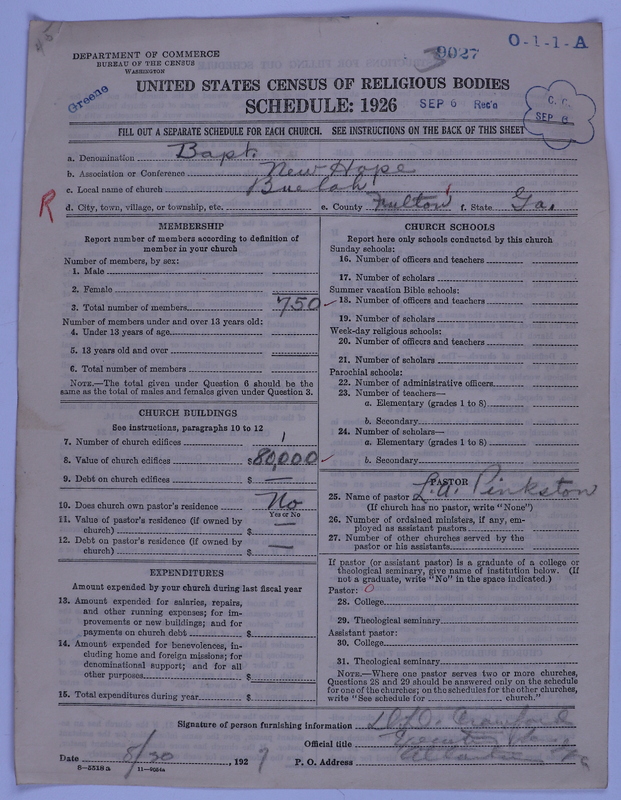 DEPARTMENT OF COMMERCE
BUREAU OF THE CENSUS
WASHINGTON
9027
O-1-1-A
Greene
UNITED STATES CENSUS OF RELIGIOUS BODIES
SCHEDULE: 1926
SEP 6 Rec'd
C. C.
SEP 8
FILL OUT A SEPARATE SCHEDULE FOR EACH CHURCH. SEE INSTRUCTIONS ON THE BACK OF THIS SHEET
a. Denomination Bapt.
b. Association or Conference New Hope
c. Local name of church Buelah
R
d. City, town, village, or township, etc. e. County Fulton f. State Ga.
MEMBERSHIP
Report number of members according to definition of
member in your church
Number of members, by sex:
1. Male
2. Female
3. Total number of members 750
Number of members under and over 13 years old:
4. Under 13 years of age
5. 13 years old and over
6. Total number of members
NOTE.—The total given under Question 6 should be the
same as the total of males and females given under Question 3.
CHURCH BUILDINGS
See instructions, paragraphs 10 to 12
7. Number of church edifices 1
8. Value of church edifices $80,000
9. Debt on church edifices $ —
10. Does church own pastor's residence No
Yes or No
11. Value of pastor's residence (if owned by
church) $ —
12. Debt on pastor's residence (if owned by
church) $ —
EXPENDITURES
Amount expended by your church during last fiscal year
13. Amount expended for salaries, repairs,
and other running expenses; for im-
provements or new buildings; and for
payments on church debt $
14. Amount expended for benevolences, in-
cluding home and foreign missions; for
denominational support; and for all
other purposes $
15. Total expenditures during year $
CHURCH SCHOOLS
Report here only schools conducted by this church
Sunday schools:
16. Number of officers and teachers
17. Number of scholars
Summer vacation Bible schools:
18. Number of officers and teachers
19. Number of scholars
Week-day religious schools:
20. Number of officers and teachers
21. Number of scholars
Parochial schools:
22. Number of administrative officers
23. Number of teachers—
a. Elementary (grades 1 to 8)
b. Secondary
24. Number of scholars—
a. Elementary (grades 1 to 8)
b. Secondary
PASTOR
25. Name of pastor L.A. Pinkston
(If church has no pastor, write "None")
26. Number of ordained ministers, if any, em-
ployed as assistant pastors
27. Number of other churches served by the
pastor or his assistants
If pastor (or assistant pastor) is a graduate of a college or
theological seminary, give name of institution below. (If
not a graduate, write "No" in the space indicated.)
Pastor: 0
28. College
29. Theological seminary
Assistant pastor:
30. College
31. Theological seminary
NOTE.—Where one pastor serves two or more churches,
Questions 28 and 29 should be answered only on the schedule
for one of the churches; on the schedules for the other churches,
write "See schedule for church."
Signature of person furnishing information Crawford
Official title
Date 8/30, 1927 P. O. Address Atlanta, Ga
8—5518a 11—9054a